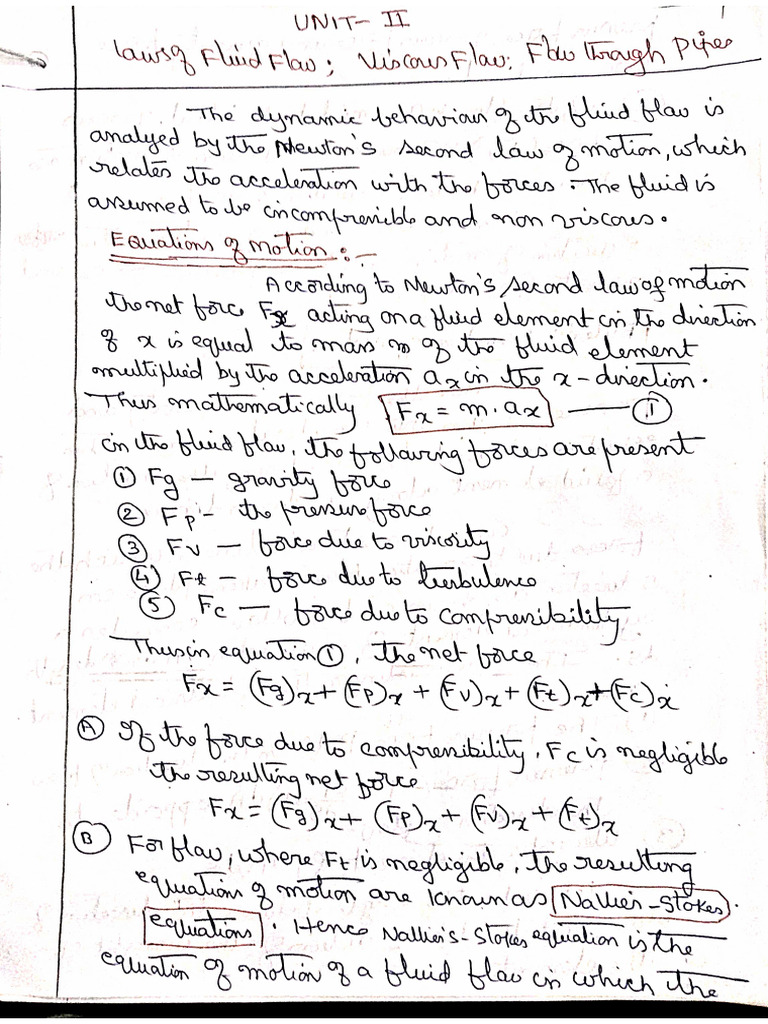 UNIT- II
Laws of Fluid Flow; Viscous Flow: Flow through Pipes
The dynamic behaviour of the fluid flow is
analysed by the Newton's second law of motion, which
relates the acceleration with the forces. The fluid is
assumed to be incompressible and non viscous.
Equations of motion:-
According to Newton's second law of motion
the net force Fx acting on a fluid element in, the direction
of x is equal to mass m of the fluid element
multiplied by the acceleration ax in the x-direction.
Thus mathematically Fx = m. ax —— ①
in the fluid flow, the following forces are present
① Fg — gravity force
② Fp - the pressure force
③ Fv — force due to viscosity
④ Ft — force due to turbulence
⑤ Fc — force due to compressibility
Thus in equation ①, the net force
Fx = (Fg)x + (Fp)x + (Fv)x + (Ft)x + (Fc)x
Ⓐ If the force due to compressibility, Fc is negligible
the resulting net force
Fx = (Fg)x + (Fp)x + (Fv)x + (Ft)x
Ⓑ For flow, where Ft is negligible, the resulting
equations of motion are known as Navier's-Stokes
equations. Hence Navier's-Stokes equation is the
equation of motion of a fluid flow in which the